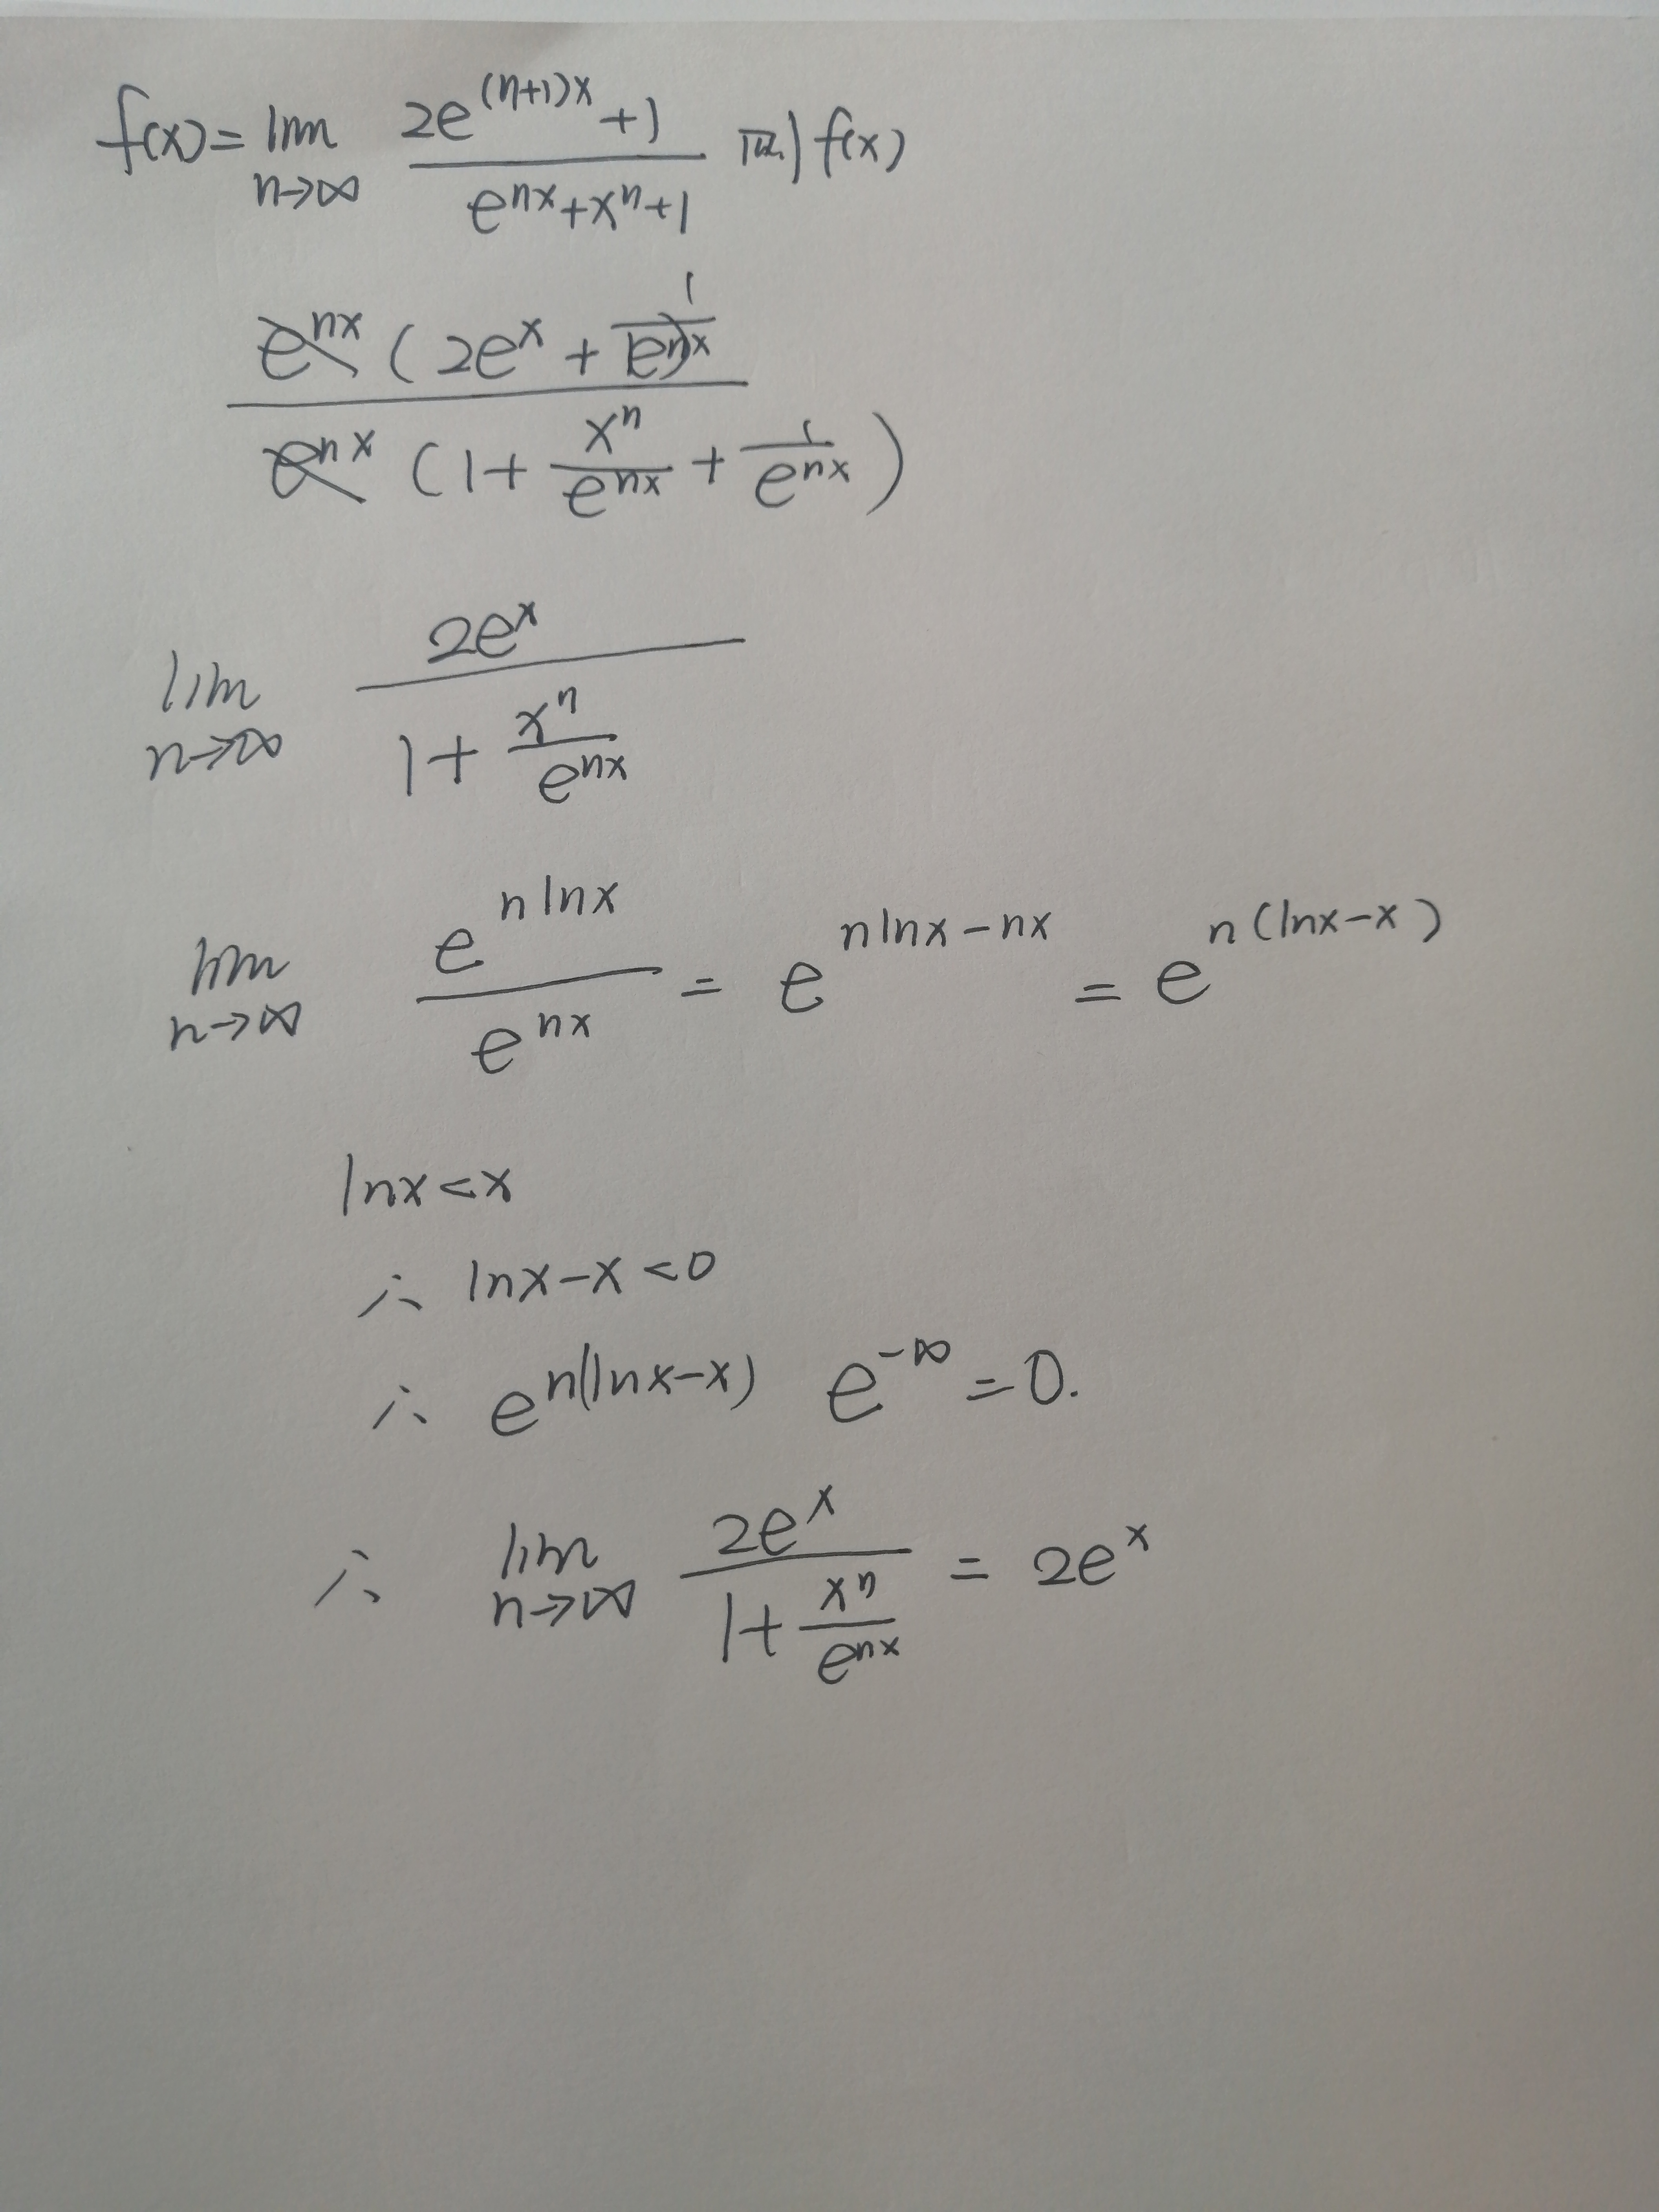 f(x)=lim n→∞ (2e^((n+1)x)+1)/(e^(nx)+x^n+1) 则 f(x)
e^(nx)(2e^x+1/e^(nx))/(e^(nx)(1+x^n/e^(nx)+1/e^(nx)))
lim n→∞ 2e^x/(1+x^n/e^(nx))
lim n→∞ e^(n lnx)/e^(nx) = e^(n lnx-nx) = e^(n(lnx-x))
lnx<x
∴ lnx-x<0
∴ e^(n(lnx-x)) e^(-∞)=0.
∴ lim n→∞ 2e^x/(1+x^n/e^(nx)) = 2e^x